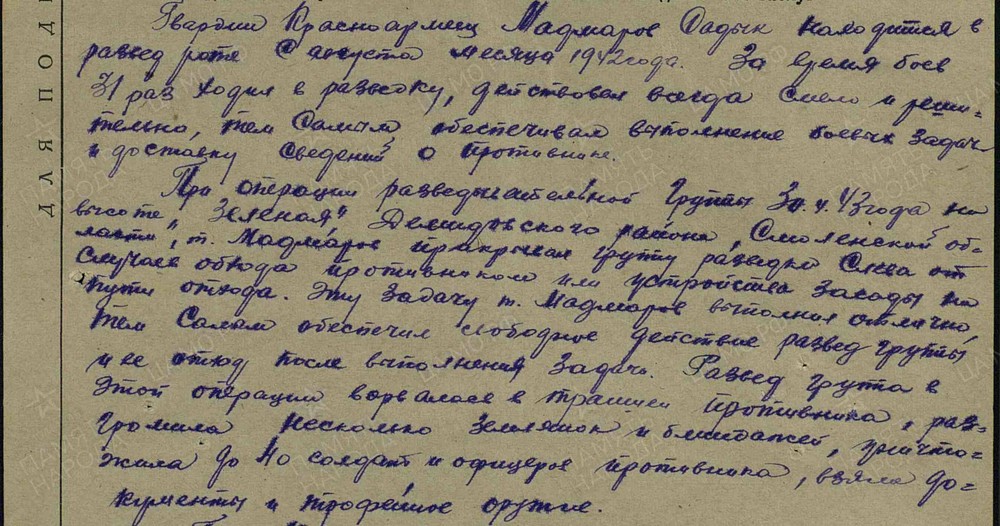 Гвардии Красноармеец Мадмаров Садык находится в
развед роте с августа месяца 1942 года. За время боев
31 раз ходил в разведку, действовал всегда смело и реши-
тельно, тем самым обеспечивал выполнение боевых задач
и доставку сведений о противнике.
При операции разведывательной группы 30.4.43 года на
высоте "Зеленая" Демидовского района, Смоленской об-
ласти, т. Мадмаров прикрывал группу разведки слева от
случаев обхода противником или устройства засады на
пути отхода. Эту задачу т. Мадмаров выполнил отлично,
тем самым обеспечил свободное действие развед группы
и ее отход после выполнения задачи. Развед группа в
этой операции ворвалась в траншеи противника, раз-
громила несколько землянок и блиндажей, уничто-
жила до 40 солдат и офицеров противника, взяла до-
кументы и трофейное оружие.
ДЛЯ ПОД